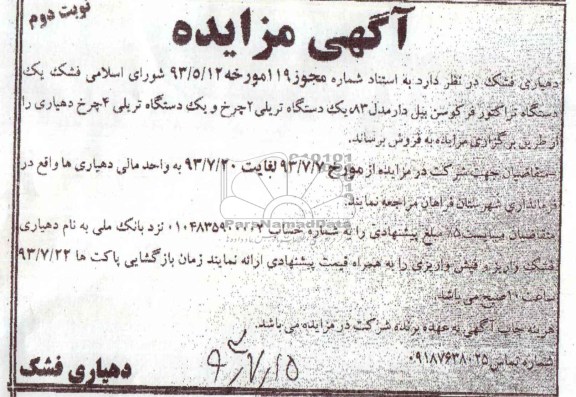 نوبت دوم
آگهی مزایده
دهیاری فشک در نظر دارد به استناد شماره مجوز ۱۱۹مورخه ۹۳/۵/۱۲ شورای اسلامی فشک یک
دستگاه تراکتور فرگوسن بیل دار مدل ۸۳، یک دستگاه تریلی ۲چرخ و یک دستگاه تریلی ۴چرخ دهیاری را
از طریق برگزاری مزایده به فروش برساند.
متقاضیان جهت شرکت در مزایده از مورخ ۹۳/۷/۷ لغایت ۹۳/۷/۲۰ به واحد مالی دهیاری ها واقع در
فرمانداری شهرستان فراهان مراجعه نمایند.
متقاضیان میبایست ۵٪ مبلغ پیشنهادی را به شماره حساب نزد بانک ملی به نام دهیاری
فشک واریز و فیش واریزی را به همراه قیمت پیشنهادی ارائه نمایند زمان بازگشایی پاکت ها ۹۳/۷/۲۲
ساعت ۱۰صبح می باشد.
هزینه چاپ آگهی به عهده برنده شرکت در مزایده می باشد.
شماره تماس ۰۹۱۸۷۶۳۸۰۲۵
۹۳/۷/۱۵
دهیاری فشک
ParsNamadData